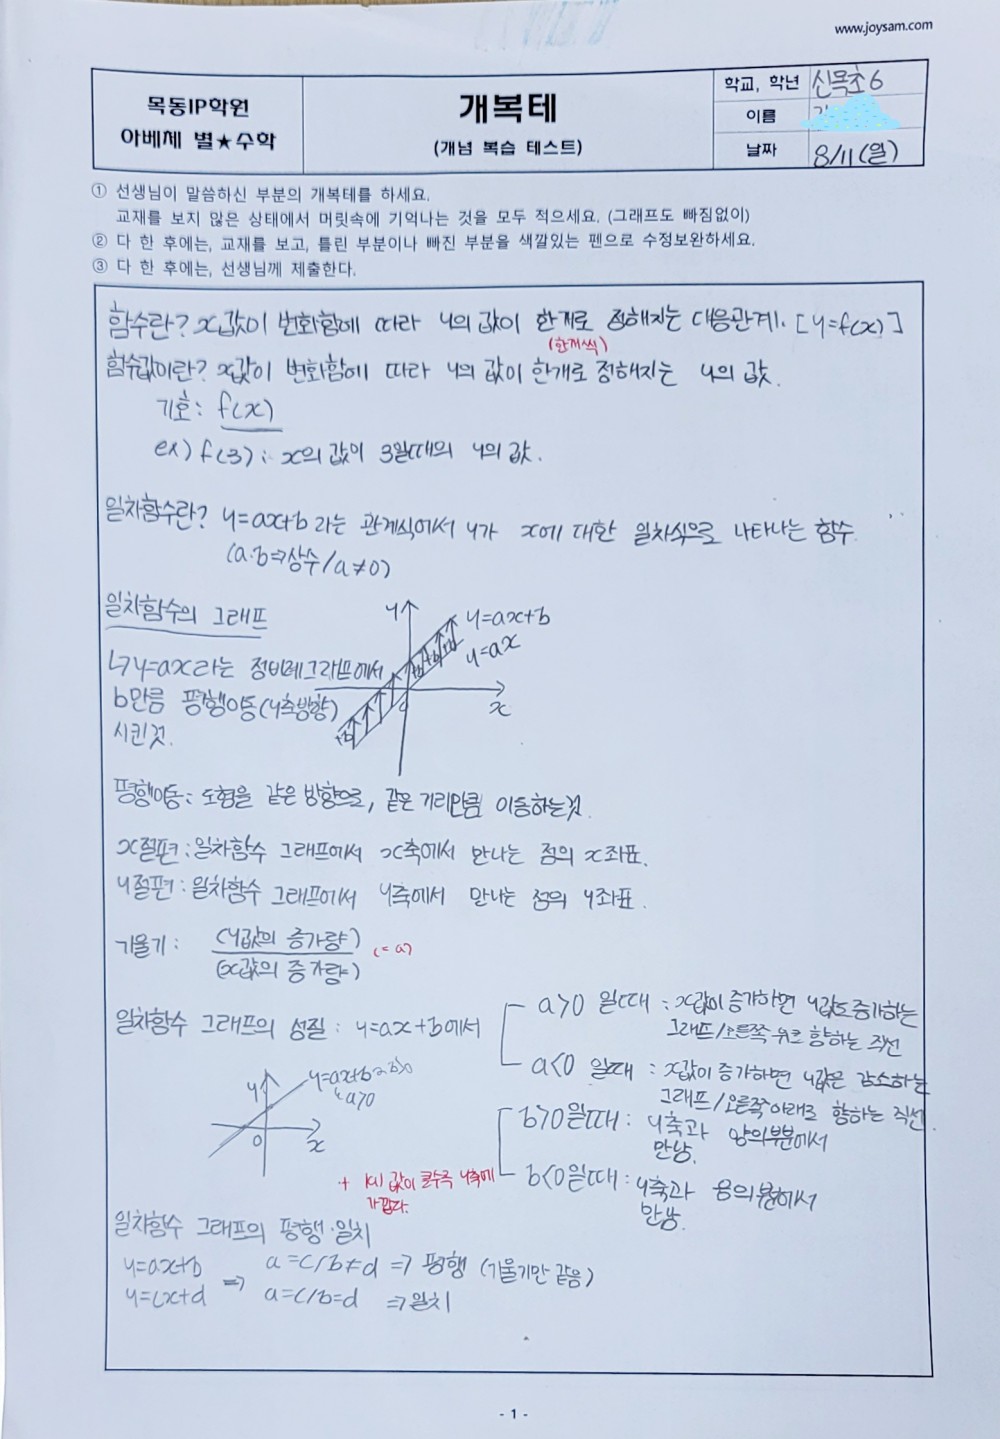 www.joysam.com
목동IP학원
아베체 별★수학
개복테
(개념 복습 테스트)
학교, 학년 신목초 6
이름
날짜 8/11(일)
① 선생님이 말씀하신 부분의 개복테를 하세요.
교재를 보지 않은 상태에서 머릿속에 기억나는 것을 모두 적으세요. (그래프도 빠짐없이)
② 다 한 후에는, 교재를 보고, 틀린 부분이나 빠진 부분을 색깔있는 펜으로 수정보완하세요.
③ 다 한 후에는, 선생님께 제출한다.
함수란? x값이 변화함에 따라 y의 값이 한개로 정해지는 대응관계. [y=f(x)]
(한개씩)
함수값이란? x값이 변화함에 따라 y의 값이 한개로 정해지는 y의 값.
기호: f(x)
ex) f(3): x의 값이 3일때의 y의 값.
일차함수란? y=ax+b 라는 관계식에서 y가 x에 대한 일차식으로 나타나는 함수.
(a.b⇒상수/a≠0)
일차함수의 그래프
y
y=ax+b
y=ax
↳y=ax라는 정비례그래프에서
b만큼 평행이동(y축방향)
시킨것.
+b +b +b
o
x
+b
평행이동: 도형을 같은 방향으로, 같은 거리만큼 이동하는것.
x절편: 일차함수 그래프에서 x축에서 만나는 점의 x좌표.
y절편: 일차함수 그래프에서 y축에서 만나는 점의 y좌표.
기울기: (y값의 증가량)/(x값의 증가량) (=a)
일차함수 그래프의 성질: y=ax+b에서
a>0 일때: x값이 증가하면 y값도 증가하는
그래프/오른쪽 위로 향하는 직선
a<0 일때: x값이 증가하면 y값은 감소하는
그래프/오른쪽아래로 향하는 직선.
b>0일때: y축과 양의부분에서
만남.
b<0일때: y축과 음의부분에서
만남.
y
y=ax+b b>0
a>0
0
x
+ |a| 값이 클수록 y축에
가깝다.
일차함수 그래프의 평행·일치
y=ax+b
y=cx+d
⇒ a=c/b≠d ⇒ 평행 (기울기만 같음)
a=c/b=d ⇒일치
- 1 -